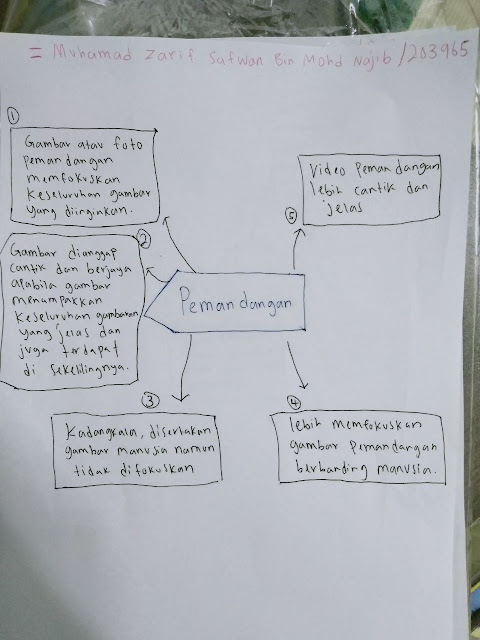 = Muhamad Zarif Safwan Bin Mohd Najib / 203965
①
Gambar atau foto
pemandangan
memfokuskan
keseluruhan gambar
yang diinginkan.
②
Gambar dianggap
cantik dan berjaya
apabila gambar
menampakkan
keseluruhan gambaran
yang jelas dan
juga terdapat
di sekelilingnya.
Pemandangan
⑤
Video pemandangan
lebih cantik dan
jelas
③
Kadangkala, disertakan
gambar manusia namun
tidak difokuskan
④
lebih memfokuskan
gambar pemandangan
berbanding manusia.